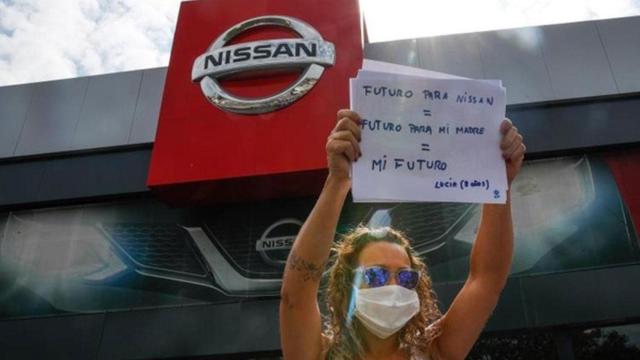 NISSAN
FUTURO PARA NISSAN
=
FUTURO PARA MI MADRE
=
MI FUTURO
LUCIA (8 AÑOS)
NISSAN